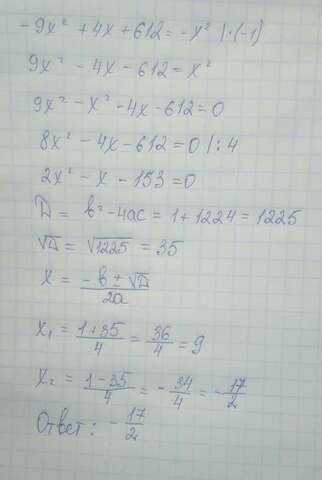 -9x² + 4x + 612 = -x² | ·(-1)
9x² - 4x - 612 = x²
9x² - x² - 4x - 612 = 0
8x² - 4x - 612 = 0 |: 4
2x² - x - 153 = 0
D = b² - 4ac = 1 + 1224 = 1225
√D = √1225 = 35
x = (-b ± √D)/2a
x₁ = (1+35)/4 = 36/4 = 9
x₂ = (1-35)/4 = -34/4 = -17/2
Ответ: -17/2